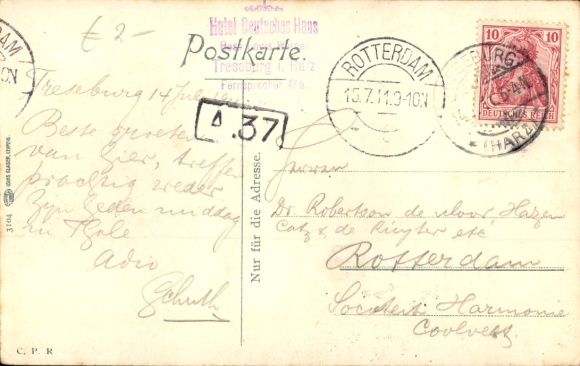 £ 2-
Hotel Deutsches Haus
Treseburg i. Harz
Fernsprecher
Postkarte.
ROTTERDAM
15.7.11.9-10N
10 10
DEUTSCHES REICH
(HARZ)
Treseburg 14 Juli
A.37
Beste groeten
van hier, treffen
prachtig weder
Zijn heden middag
in Thale
Adio
Schuth
Nur für die Adresse.
Heeren
Dr. Robertson de Hazen
Catz & de Ruyter etc.
Rotterdam
Societeit Harmonie
Coolvest
3104
LOUIS GLASER, LEIPZIG
C. P. R